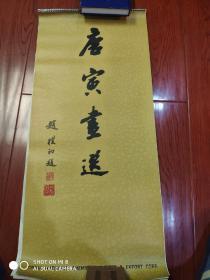 唐寅画选
趙樸初题
& EXPORT CORP.
SHOT ON MI 8
AI DUAL CAMERA